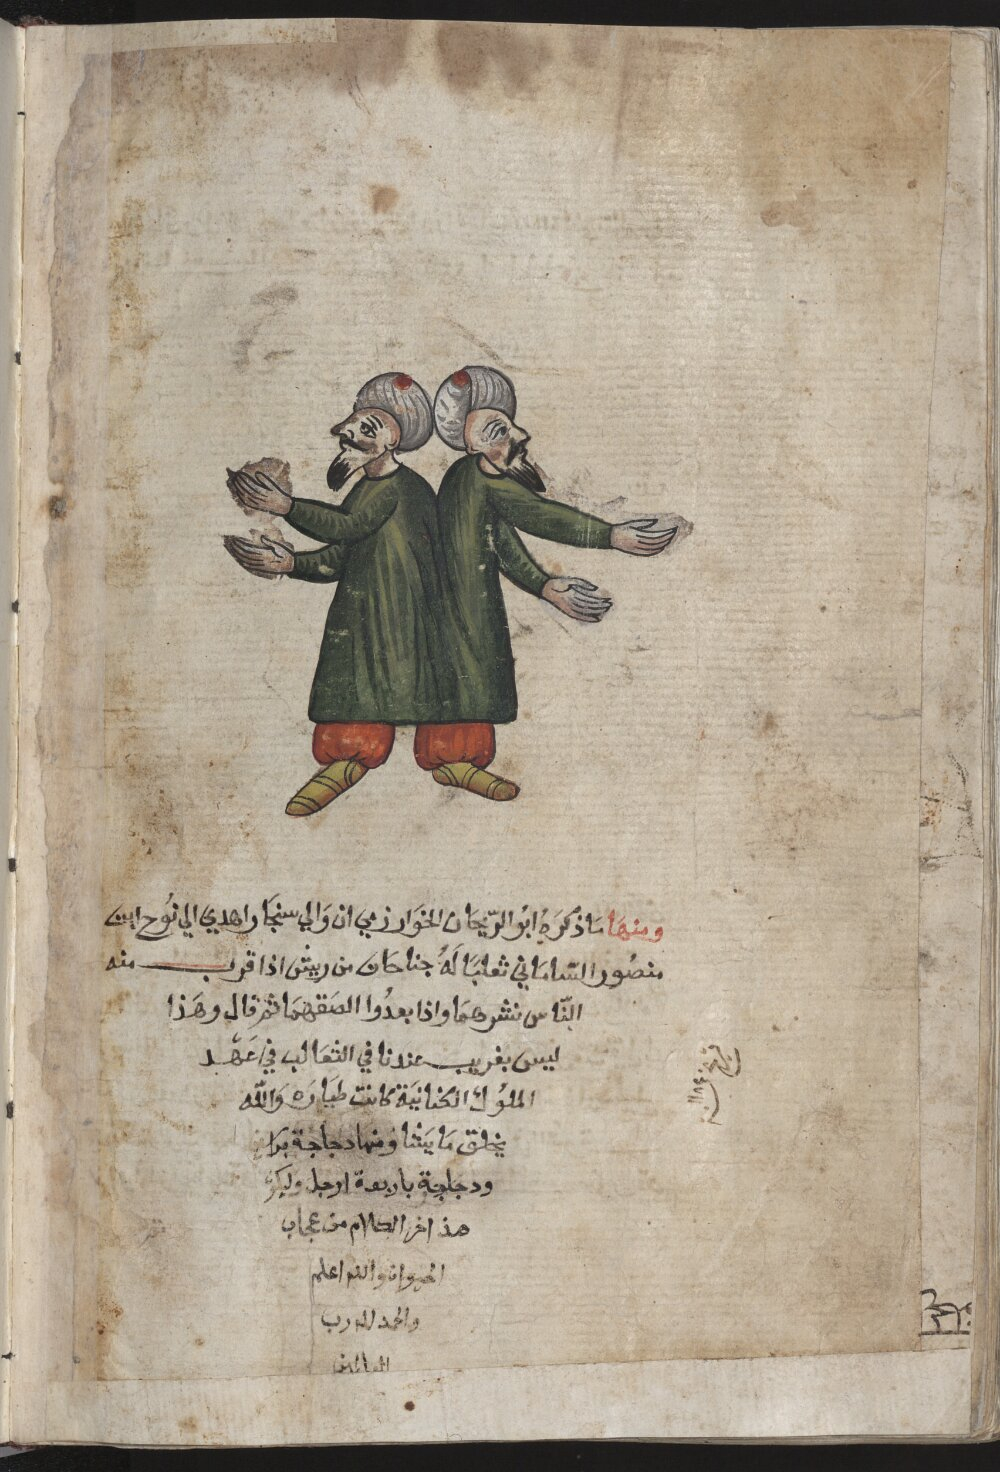 ومنها ما ذكره ابو الريحان الخوارزمي ان والي سنجار اهدي الي نوح ابن
منصور الساماني ثعلبا له جناحان من ريش اذا قرب منه
الناس نشرهما واذا بعدوا الصقهما ثم قال وهذا
ليس بغريب عندنا في الثعالب في عهد
الملوك الكنانية كانت طياره والله
يخلق ما يشا ومنها دجاجة براسين
ودجاجة باربعة ارجل وليكن
هذا اخر الكلام من عجايب
الحيوان والله اعلم
والحمد لله رب
العالمين